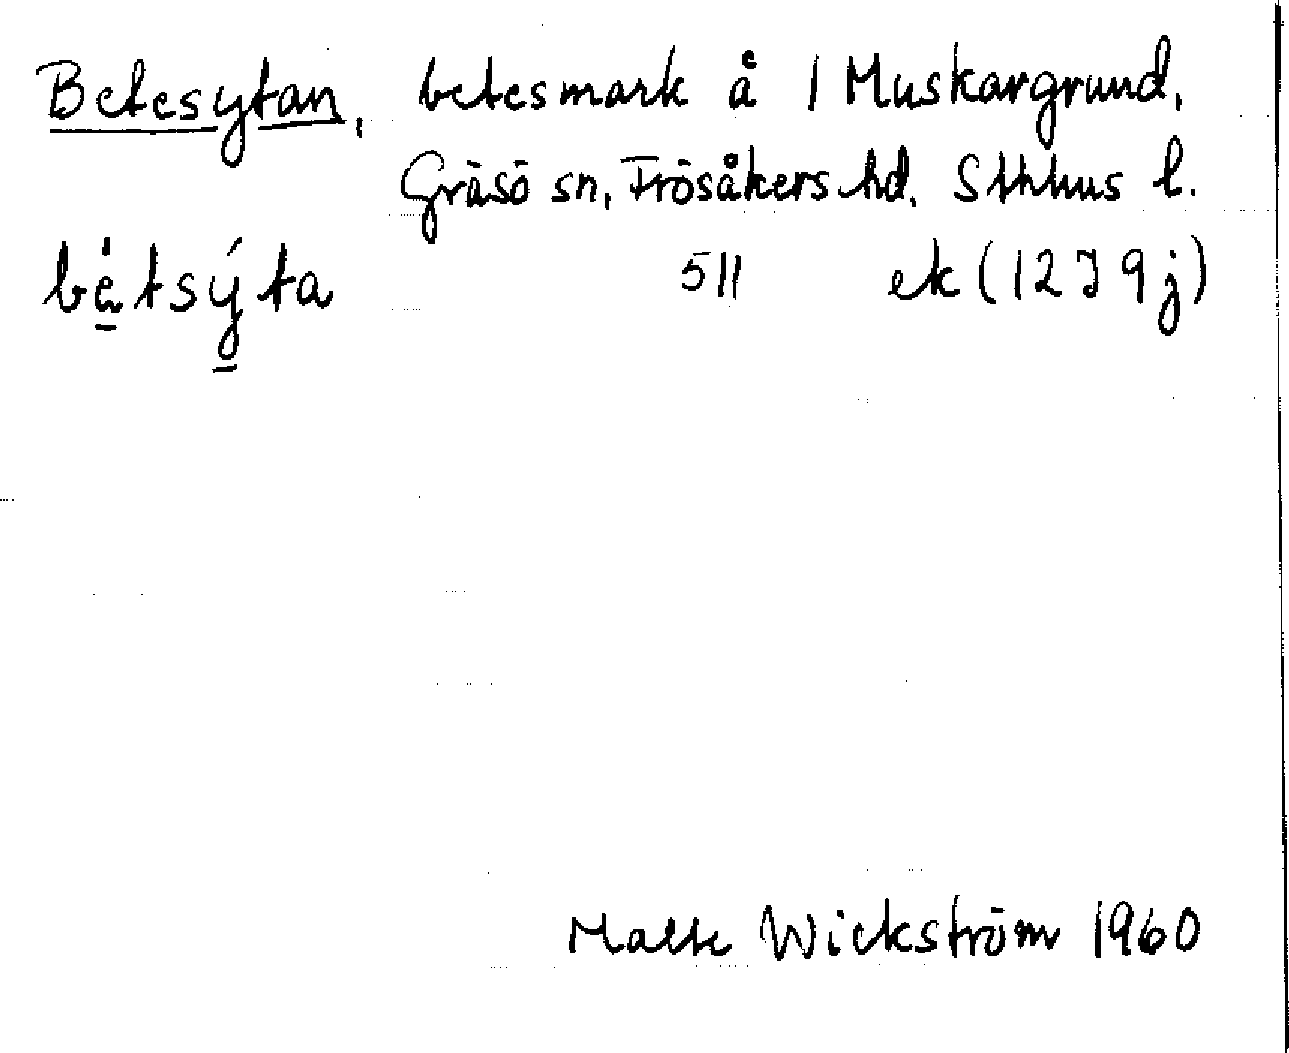 Betesytan, betesmark å 1 Muskargrund,
Gräsö sn, Frösåkers hd. Sthlms l.
bètsýta 511 ek (12J9j)
Malte Wickström 1960